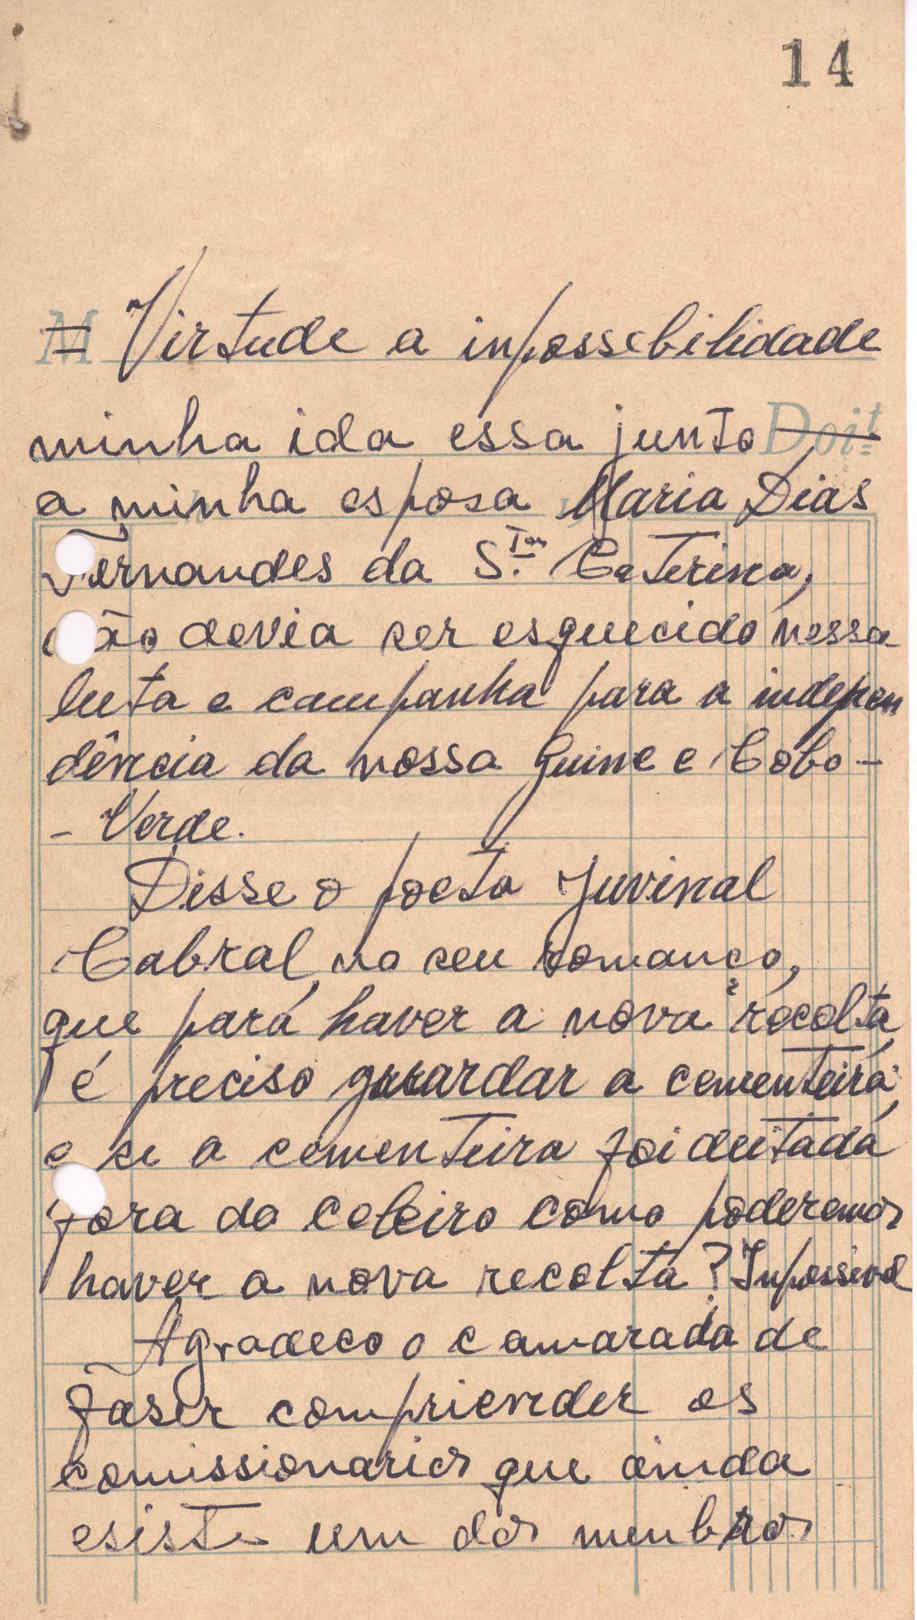 14
= Virtude a inpossebilidade
minha ida essa junto
Doit
a minha esposa Maria Dias
Fernandes da S.ta Caterina,
não devia ser esquecido nessa
luta e campanha para a indepen
dência da nossa Guine e Cobo-
- Verde.
Disse o poeta Juvinal
Cabral, no seu romanço,
que pará haver a nova recolta,
é preciso guardar a cementeirá;
e se a cementeira foi deitadá
fora do celeiro como poderemos
haver a nova recolta? Inpossivel
Agradeco o camarada de
faser compriender os
comissionarios que ainda
esiste um dos menbros